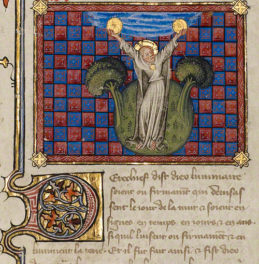 erechief dist dieu luminaire
soient ou firmamēt qui deuisas
sent le iour de la nuit & soient en
signes en temps en iours & en ans
luisent ou firmamēt & en
luminent la terre. Et il fut fait ainsi. & fist dieu